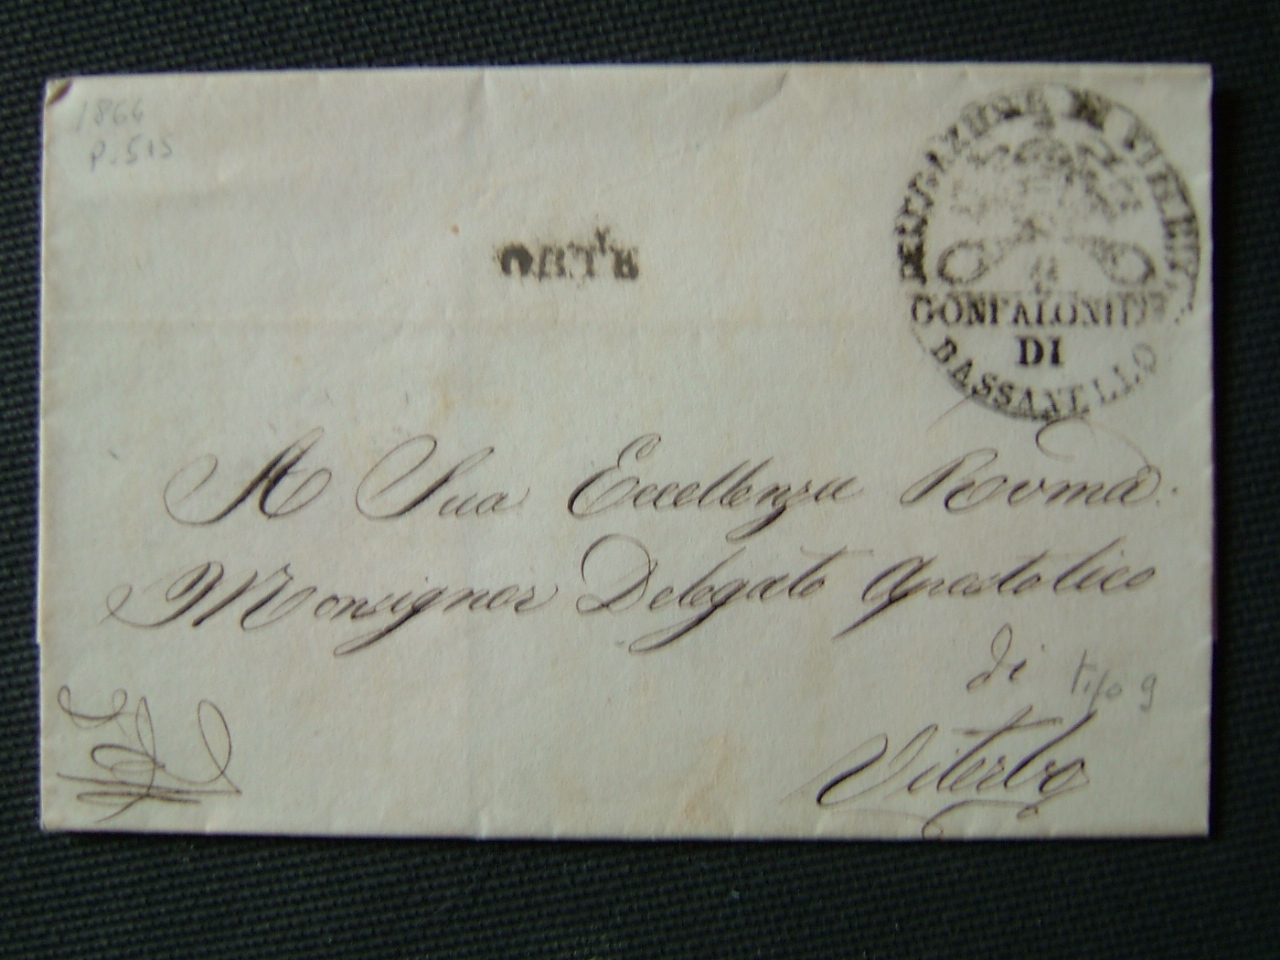 1864
P. 515
ORTE
DELEGAZIONE DI VITERBO
GONFALONIERE
DI
BASSANELLO
A Sua Eccellenza Rvma
Monsignor Delegato Apostolico
di
tipo 9
Viterbo